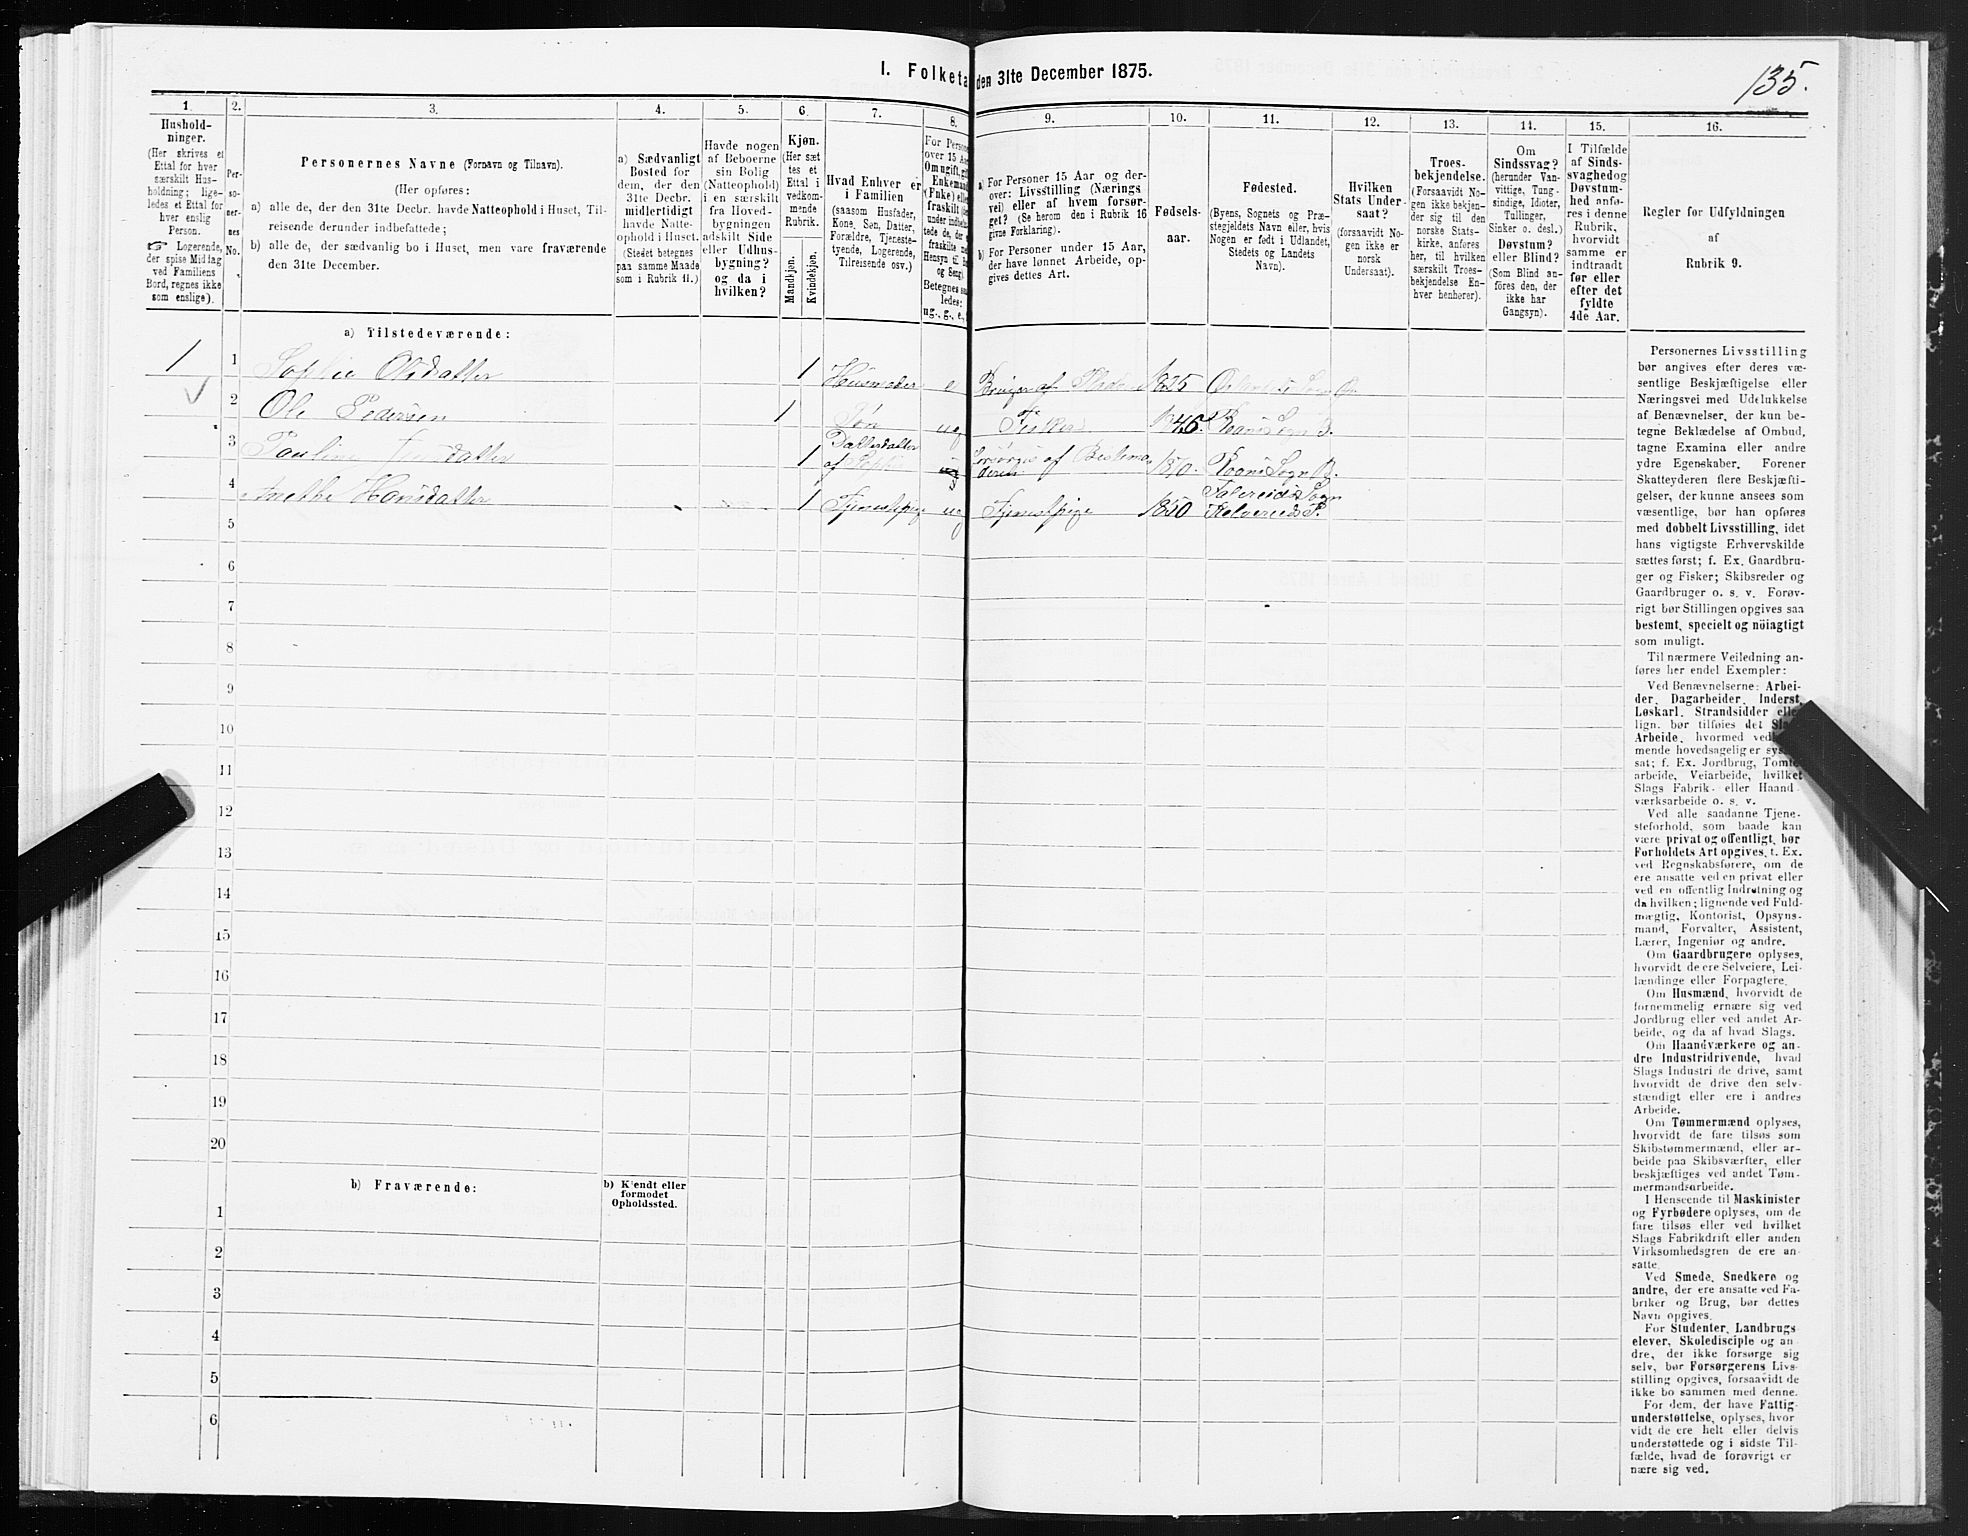 I. Folketa den 31te December 1875.
135.
1.
2.
3.
4.
5.
6.
7.
8.
9.
10.
11.
12.
13.
14.
15.
16.
Hushold-
ninger.
(Her skrives et
Ettal for hver
særskilt Hus-
holdning; lige-
ledes et Ettal for
hver enslig
Person.
☞ Logerende,
der spise Middag
ved Familiens
Bord, regnes ikke
som enslige).
Per-
so-
ner-
nes
No.
Personernes Navne (Fornavn og Tilnavn).
(Her opføres:
a) alle de, der den 31te Decbr. havde Natteophold i Huset, Til-
reisende derunder indbefattede;
b) alle de, der sædvanlig bo i Huset, men vare fraværende
den 31te December.
a) Sædvanligt
Bosted for
dem, der den
31te Decbr.
midlertidigt
havde Natte-
ophold i Huset.
(Stedet betegnes
paa samme Maade
som i Rubrik 11.)
Havde nogen
af Beboerne
sin Bolig
(Natteophold)
i en særskilt
fra Hoved-
bygningen
adskilt Side
eller Udhus-
bygning?
og da i
hvilken?
Kjøn.
(Her sæt
tes et
Ettal i
vedkom-
mende
Rubrik.
Mandkjøn.
Kvindekjøn.
Hvad Enhver er
i Familien
(saasom Husfader,
Kone, Søn, Datter,
Forældre, Tjeneste-
tyende, Logerende,
Tilreisende osv.)
For Persone
over 15 Aa
Om ugift, gif
Enkemand
(Enke) elle
fraskilt
under indbefat
tede de, der
fraskilte
Hensyn til
og Seng).
Betegnes saa
ledes:
ug., g., e.,
a) For Personer 15 Aar og der-
over: Livsstilling (Nærings
vei) eller af hvem forsør-
get? (Se herom den i Rubrik 16
givne Forklaring).
b) For Personer under 15 Aar,
der have lønnet Arbeide, op-
gives dettes Art.
Fødsels-
aar.
Fødested.
(Byens, Sognets og Præ-
stegjeldets Navn eller, hvis
Nogen er født i Udlandet,
Stedets og Landets
Navn).
Hvilken
Stats Under-
saat?
(forsaavidt No-
gen ikke er
norsk
Undersaat).
Troes-
bekjendelse.
(Forsaavidt No-
gen ikke bekjen-
der sig til den
norske Stats-
kirke, anføres
her, til hvilken
særskilt Troes-
bekjendelse En-
hver henhører).
Om
Sindssvag?
(herunder Van-
vittige, Tung-
sindige, Idioter,
Tullinger,
Sinker o. desl.)
Døvstum?
eller Blind?
(Som Blind an-
føres den, der
ikke har
Gangsyn).
I Tilfælde
af Sinds-
svaghed og
Døvstum-
hed anfø-
res i denne
Rubrik,
hvorvidt
samme er
indtraadt
før eller
efter det
fyldte
4de Aar.
Regler for Udfyldningen
af
Rubrik 9.
a) Tilstedeværende:
1 1 Sophie Olsdatter 1 Husmoder e 1825
2 Ole Pedersen 1 Søn ug Fisker 1846. Roans Sogn
3 Pauline 1 Datterdatter
af Sophie Forsørges af Bestemo-
deren 1870. Roans Sogn
4 Anethe Hansdatter 1 Tjenestpige ug Tjenestpige 1850
5
6
7
8
9
10
11
12
13
14
15
16
17
18
19
20
b) Fraværende:
b) Kjendt eller
formodet
Opholdssted.
1
2
3
4
5
6
Personernes Livsstilling
bør angives efter deres væ-
sentlige Beskjæftigelse eller
Næringsvei med Udelukkelse
af Benævnelser, der kun be-
tegne Beklædelse af Ombud,
tagne Examina eller andre
ydre Egenskaber. Forener
Skatteyderen flere Beskjæfti-
gelser, der kunne ansees som
væsentlige, bør han opføres
med dobbelt Livsstilling, idet
hans vigtigste Erhvervskilde
sættes først; f. Ex. Gaardbru-
ger og Fisker; Skibsreder og
Gaardbruger o. s. v. Forøv-
rigt bør Stillingen opgives saa
bestemt, specielt og nöiagtigt
som muligt.
Til nærmere Veiledning an-
føres her endel Exempler:
Ved Benævnelserne: Arbei-
der, Dagarbeider, Inderst,
Løskarl, Strandsidder elle
lign. bør tilføies det Slag
Arbeide, hvormed ved
mende hovedsagelig er sys
sat; f. Ex. Jordbrug, Tomte
arbeide, Veiarbeide, hvilket
Slags Fabrik- eller Haand-
værksarbeide o. s. v.
Ved alle saadanne Tjene-
steforhold, som baade kan
være privat og offentligt, bør
Forholdets Art opgives, t. Ex.
ved Regnskabsførere, om de
ere ansatte ved en privat eller
ved en offentlig Indretning og
da hvilken; lignende ved Fuld-
mægtig, Kontorist, Opsyns-
mand, Forvalter, Assistent,
Lærer, Ingeniør og andre.
Om Gaardbrugere oplyses,
hvorvidt de ere Selveiere, Lei-
lændinge eller Forpagtere.
Om Husmænd, hvorvidt de
fornemmelig ernære sig ved
Jordbrug eller ved andet Ar-
beide, og da af hvad Slags.
Om Haandværkere og an-
dre Industridrivende, hvad
Slags Industri de drive, samt
hvorvidt de drive den selv-
stændigt eller ere i andres
Arbeide.
Om Tømmermænd oplyses,
hvorvidt de fare tilsøs som
Skibstømmermænd, eller ar-
beide paa Skibsværfter, eller
beskjæftiges ved andet Tøm-
mermandsarbeide.
I Henseende til Maskinister
og Fyrbødere oplyses, om de
fare tilsøs eller ved hvilket
Slags Fabrikdrift eller anden
Virksomhedsgren de ere an-
satte.
Ved Smede, Snedkere og
andre, der ere ansatte ved Fa-
briker og Brug, bør dettes
Navn opgives.
For Studenter, Landbrugs
elever, Skoledisciple og an-
dre, der ikke forsørge sig
selv, bør Forsørgerens Livs-
stilling opgives, forsaavidt de
ikke bo sammen med denne.
For dem, der have Fattig-
understøttelse, oplyses, hvor
vidt de ere helt eller delvis
understøttede og i sidste Til-
fælde, hvad de forøvrigt er
nære sig ved.